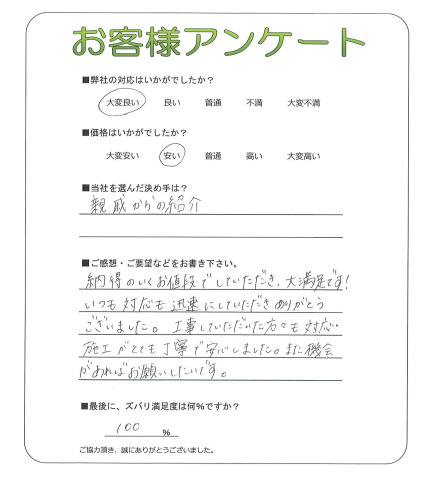 お客様アンケート
■弊社の対応はいかがでしたか？
大変良い　良い　普通　不満　大変不満
■価格はいかがでしたか？
大変安い　安い　普通　高い　大変高い
■当社を選んだ決め手は？
親戚からの紹介
■ご感想・ご要望などをお書き下さい。
納得のいくお値段でしていただき、大満足です！
いつも対応も迅速にしていただきありがとう
ございました。工事していただいた方々も対応・
施工がとても丁寧で安心しました。また機会
があればお願いしたいです。
■最後に、ズバリ満足度は何％ですか？
100 ％
ご協力頂き、誠にありがとうございました。